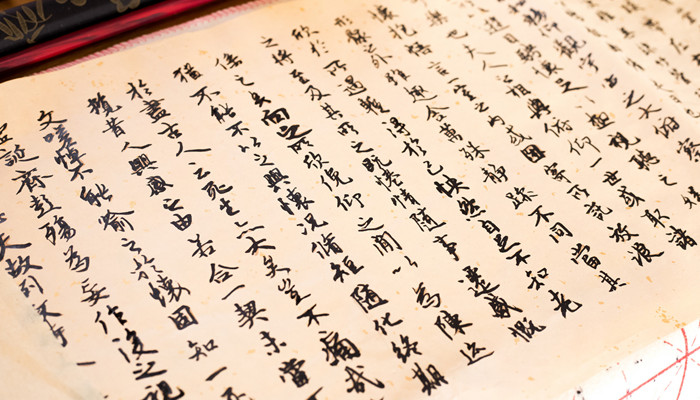 和暢仰觀宇宙之大俯察
遊目騁懷足以極視聽之
也夫人之相與俯仰一世或取諸
懷抱悟言一室之內或因寄所託放浪
形骸之外雖趣舍萬殊靜躁不同當其
欣於所遇蹔得於己快然自足不知老
之將至及其所之既惓情隨事遷感慨
係之矣向之所欣俛仰之間以為陳迹
猶不能不以之興懷況脩短隨化終期
於盡古人云死生亦大矣豈不痛哉
攬昔人興感之由若合一契未嘗
文嗟悼不能喻之於懷固知一
虛誕齊彭殤為妄作後之視
夫故列敘時